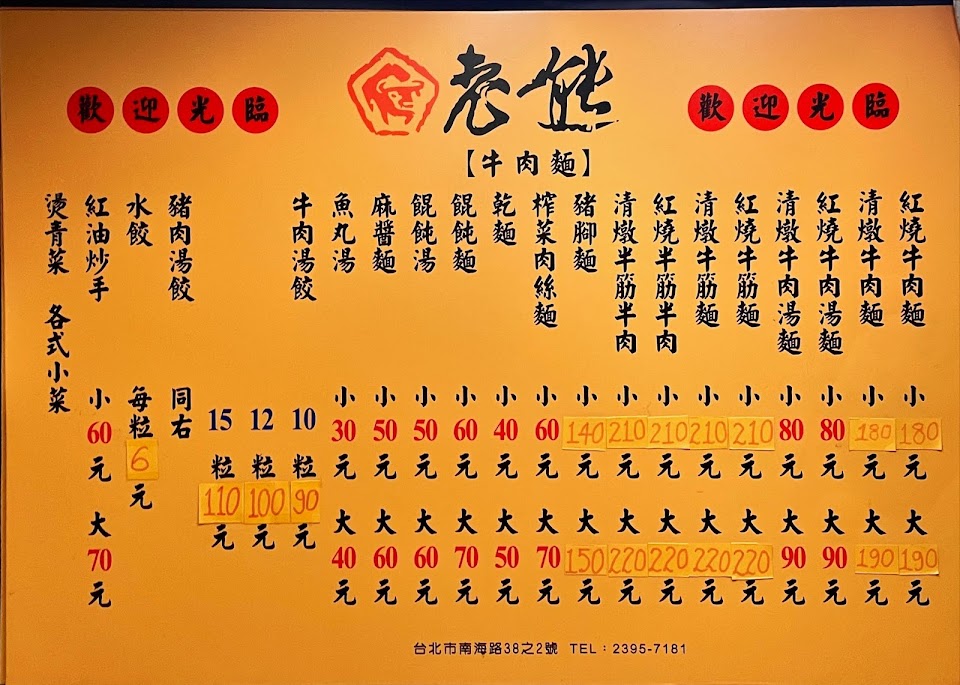 歡迎光臨
老熊
歡迎光臨
【牛肉麵】
紅燒牛肉麵 小180元 大190元
清燉牛肉麵 小180元 大190元
紅燒牛肉湯麵 小80元 大90元
清燉牛肉湯麵 小80元 大90元
紅燒牛筋麵 小210元 大220元
清燉牛筋麵 小210元 大220元
紅燒半筋半肉 小210元 大220元
清燉半筋半肉 小210元 大220元
豬腳麵 小140元 大150元
榨菜肉絲麵 小60元 大70元
乾麵 小40元 大50元
餛飩麵 小60元 大70元
餛飩湯 小50元 大60元
麻醬麵 小50元 大60元
魚丸湯 小30元 大40元
牛肉湯餃 10粒90元
12粒100元
15粒110元
豬肉湯餃 同右
水餃 每粒6元
紅油炒手 小60元 大70元
燙青菜 各式小菜
台北市南海路38之2號 TEL：2395-7181